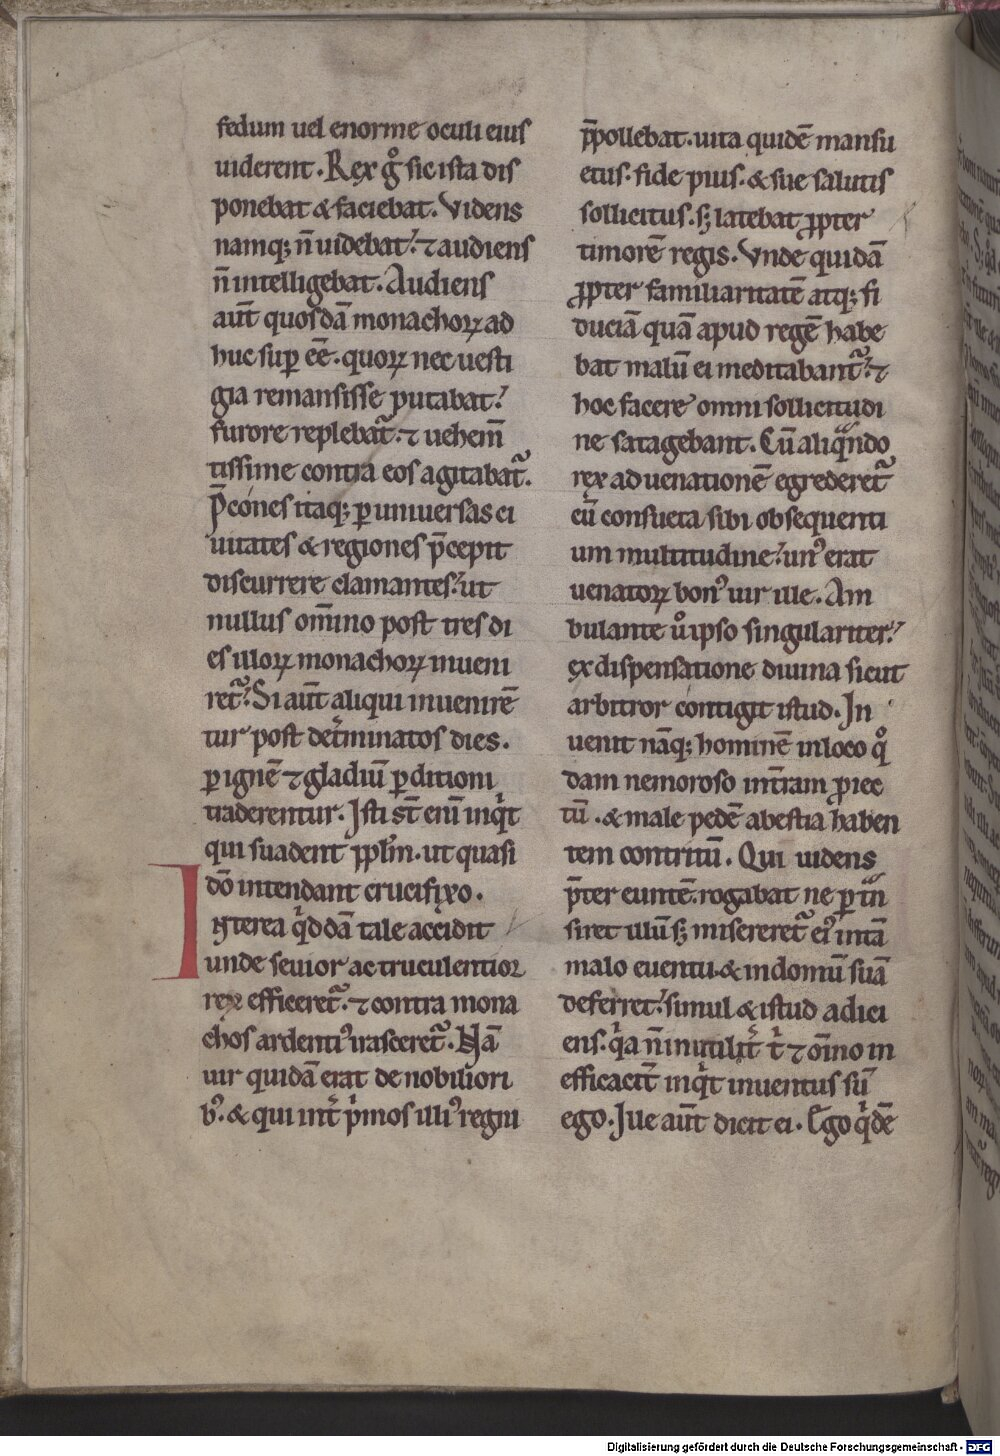 fedum uel enorme oculi eius
uiderent. Rex g̊ sic ista dis
ponebat & faciebat. Videns
namq; n̄ uidebat. ⁊ audiens
n̄ intelligebat. Audiens
aut̄ quosdā monachoꝝ ad
huc sup̄ eē. quoꝝ nec uesti
gia remansisse putabat.
furore replebat᷑. ⁊ uehem̄
tissime contra eos agitabat᷑.
P̄cones itaq; ꝑ uniuersas ci
uitates & regiones p̄cepit
discurrere clamantes. ut
nullus om̄ino post tres di
es illoꝝ monachoꝝ inueni
ret᷑. Si aut̄ aliqui inuenirē
tur post det̄minatos dies.
ꝑ ignē ⁊ gladiū ꝑditioni
traderentur. Isti st̄ eni̅ inqͥt
qui suadent ppl̄m. ut quasi
dō intendant crucifixo.
Interea qͥddā tale accidit
unde seuior ac truculentior
rex efficeret᷑. ⁊ contra mona
chos ardentiꝰ irasceret᷑. Nā
uir quidā erat de nobiliori
bꝰ. & qui int̄ pͥmos illiꝰ regni
p̄pollebat. uita quidē mansu
etus. fide pius. & sue salutis
sollicitus. s; latebat ꝓpter
timorē regis. Vnde quidā
ꝓpter familiaritatē atq; fi
duciā quā apud regē habe
bat malū ei meditabant᷑. ⁊
hoc facere omni sollicitudi
ne satagebant. Cū aliqᷓndo
rex ad uenationē egrederet᷑
cū consueta sibi obsequenti
um multitudine. unꝰ erat
uenatoꝝ bonꝰ uir ille. Am
bulante ů ipso singulariter.
ex dispensatione diuina sicut
arbitror contigit istud. In
uenit nāq; hominē in loco qͦ
dam nemoroso int̄ram ꝓiec
tū. & male pedē a bestia haben
tem contritū. Qui uidens
p̄ter euntē. rogabat ne ꝑ tn̄
siret illū s; misereret᷑ eiꝰ in tā
malo euentu. & in domū suā
deferret. simul & istud adici
ens. qͥa n̄ inutilit̄ t̄ ⁊ oīno in
efficacit̄ inqͥt inuentus sū
ego. Ille aut̄ dicit ei. Ego qͥdē